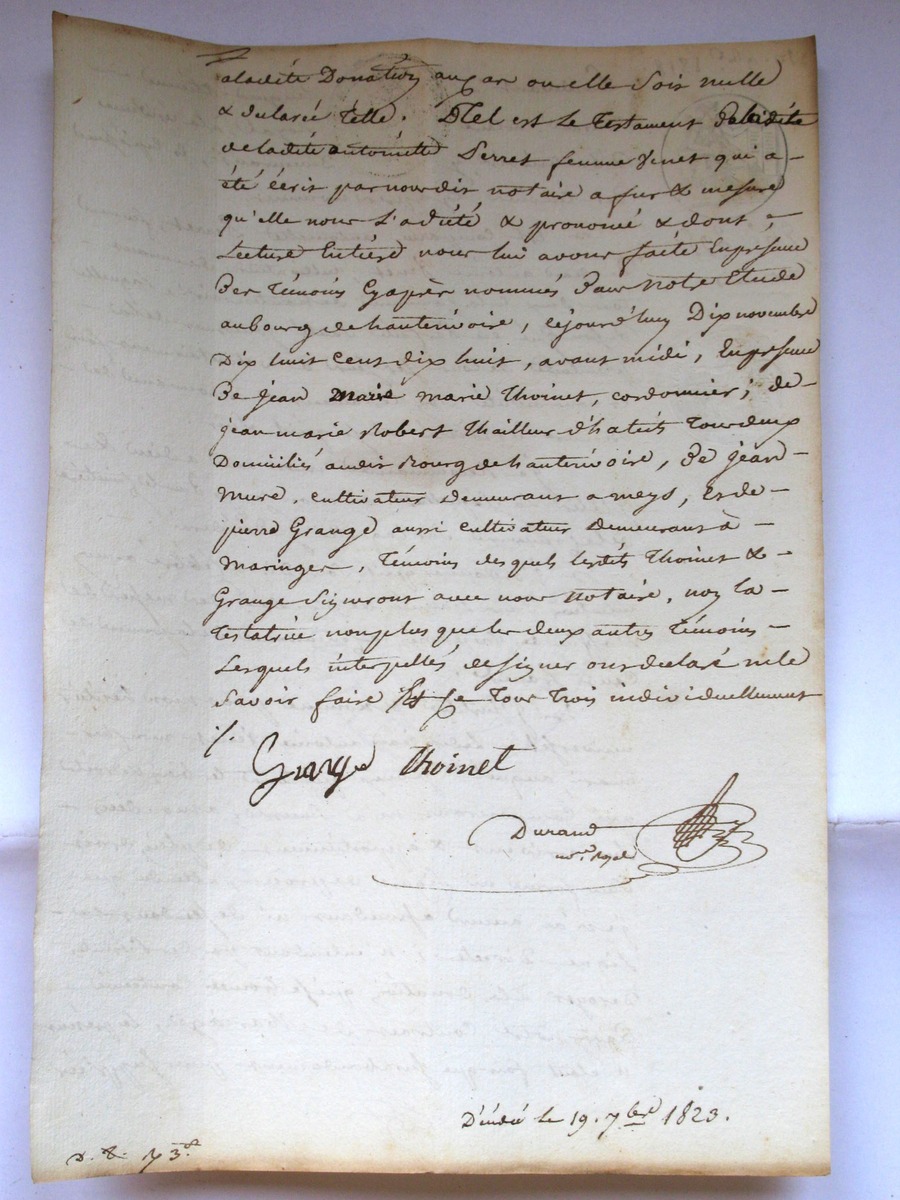 aladite Donation au cas ou elle soit nulle
& déclarée telle. Tel est le testament
de ladite antoinette Serret femme Venet qui a
été écrit par nous dit notaire a fur & mesure
qu'elle nous l'a dicté & prononcé & dont
Lecture Entière nous lui avons faite En présence
Des témoins Cy après nommés Dans notre Etude
au bourg de hauterivoire, cejourd'huy Dix novembre
Dix huit cent dix huit, avant midi, En présence
De jean marie thoinet, cordonnier, de
jean marie Robert thailleur d'habits tous deux
Domiciliés audit Bourg de hauterivoire, De jean
mure, cultivateur demeurant a meys, Et de
pierre Grange aussi cultivateur demeurant à
maringes, témoins desquels lesdits thoinet &
Grange signeront avec nous notaire, non la
testatrice non plus que les deux autres témoins
Lesquels interpellés de signer ont déclaré ne le
savoir faire tous trois individuellement
Grange thoinet
Durand
not.re royal
le 19. 7bre 1823.